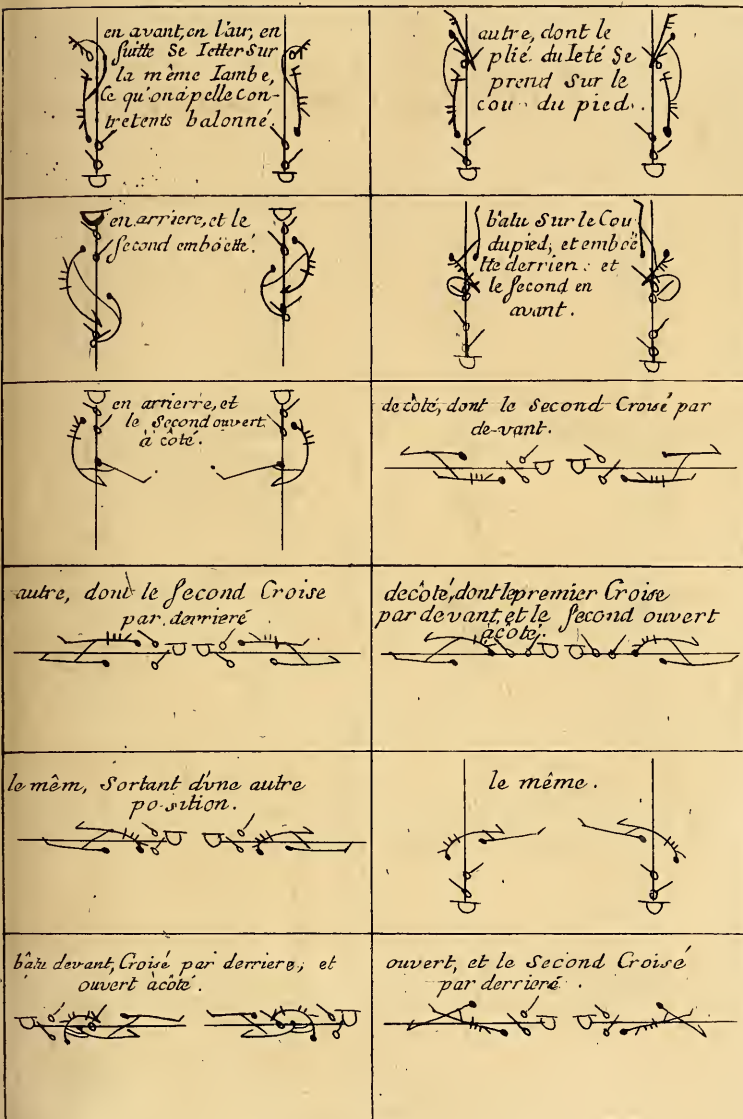 en avant, en l'air, en
suitte se Ietter sur
la même Iambe,
Ce qu'on apelle con-
tretents balonné.
autre, dont le
plié du Ieté se
prend sur le
cou du pied.
en arriere, et le
second emböetté.
batu sur le Cou
dupied, et emböe
tte derrien: et
le second en
avant.
en arrierre, et
le second ouvert
à côté.
de côté, dont le second Croisé par
de-vant.
autre, dont le second Croise
par derrieré
decôté, dont le premier Croise
par devant, et le second ouvert
àcôté.
le mêm, Sortant d'vne autre
po-sition.
le même.
bâtu devant, Croisé par derriere, et
ouvert àcôté.
ouvert, et le Second Croisé
par derrieré.